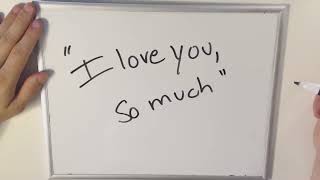 "I love you,
so much"